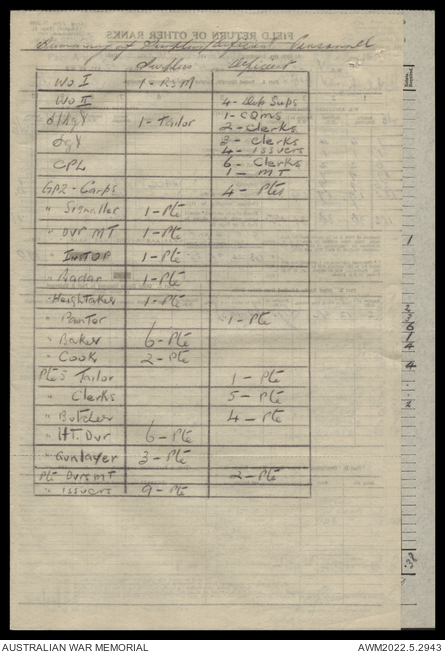 Summary of Surplus/deficient Personnel
Surplus Deficient
WO I 1 - RSM
WO II 4 - Dep Sups
S/Sgt 1 - Tailor 1 - CQMS
2 - Clerks
Sgt 3 - Clerks
4 - issuers
CPL 6 - Clerks
1 - MT
GP2 - Carps 4 - Ptes
" Signaller 1 - Pte
" DVR MT 1 - Pte
" Radar 1 - Pte
" Heightaker 1 - Pte
" Painter 1 - Pte
" Baker 6 - Pte
" Cook 2 - Pte
Ptes Tailor 1 - Pte
" Clerks 5 - Pte
" Butcher 4 - Pte
" HT. Dvr 6 - Pte
" Gunlayer 3 - Pte
Pte Dvrs MT 2 - Pte
" issuers 9 - Pte
AUSTRALIAN WAR MEMORIAL AWM2022.5.2943